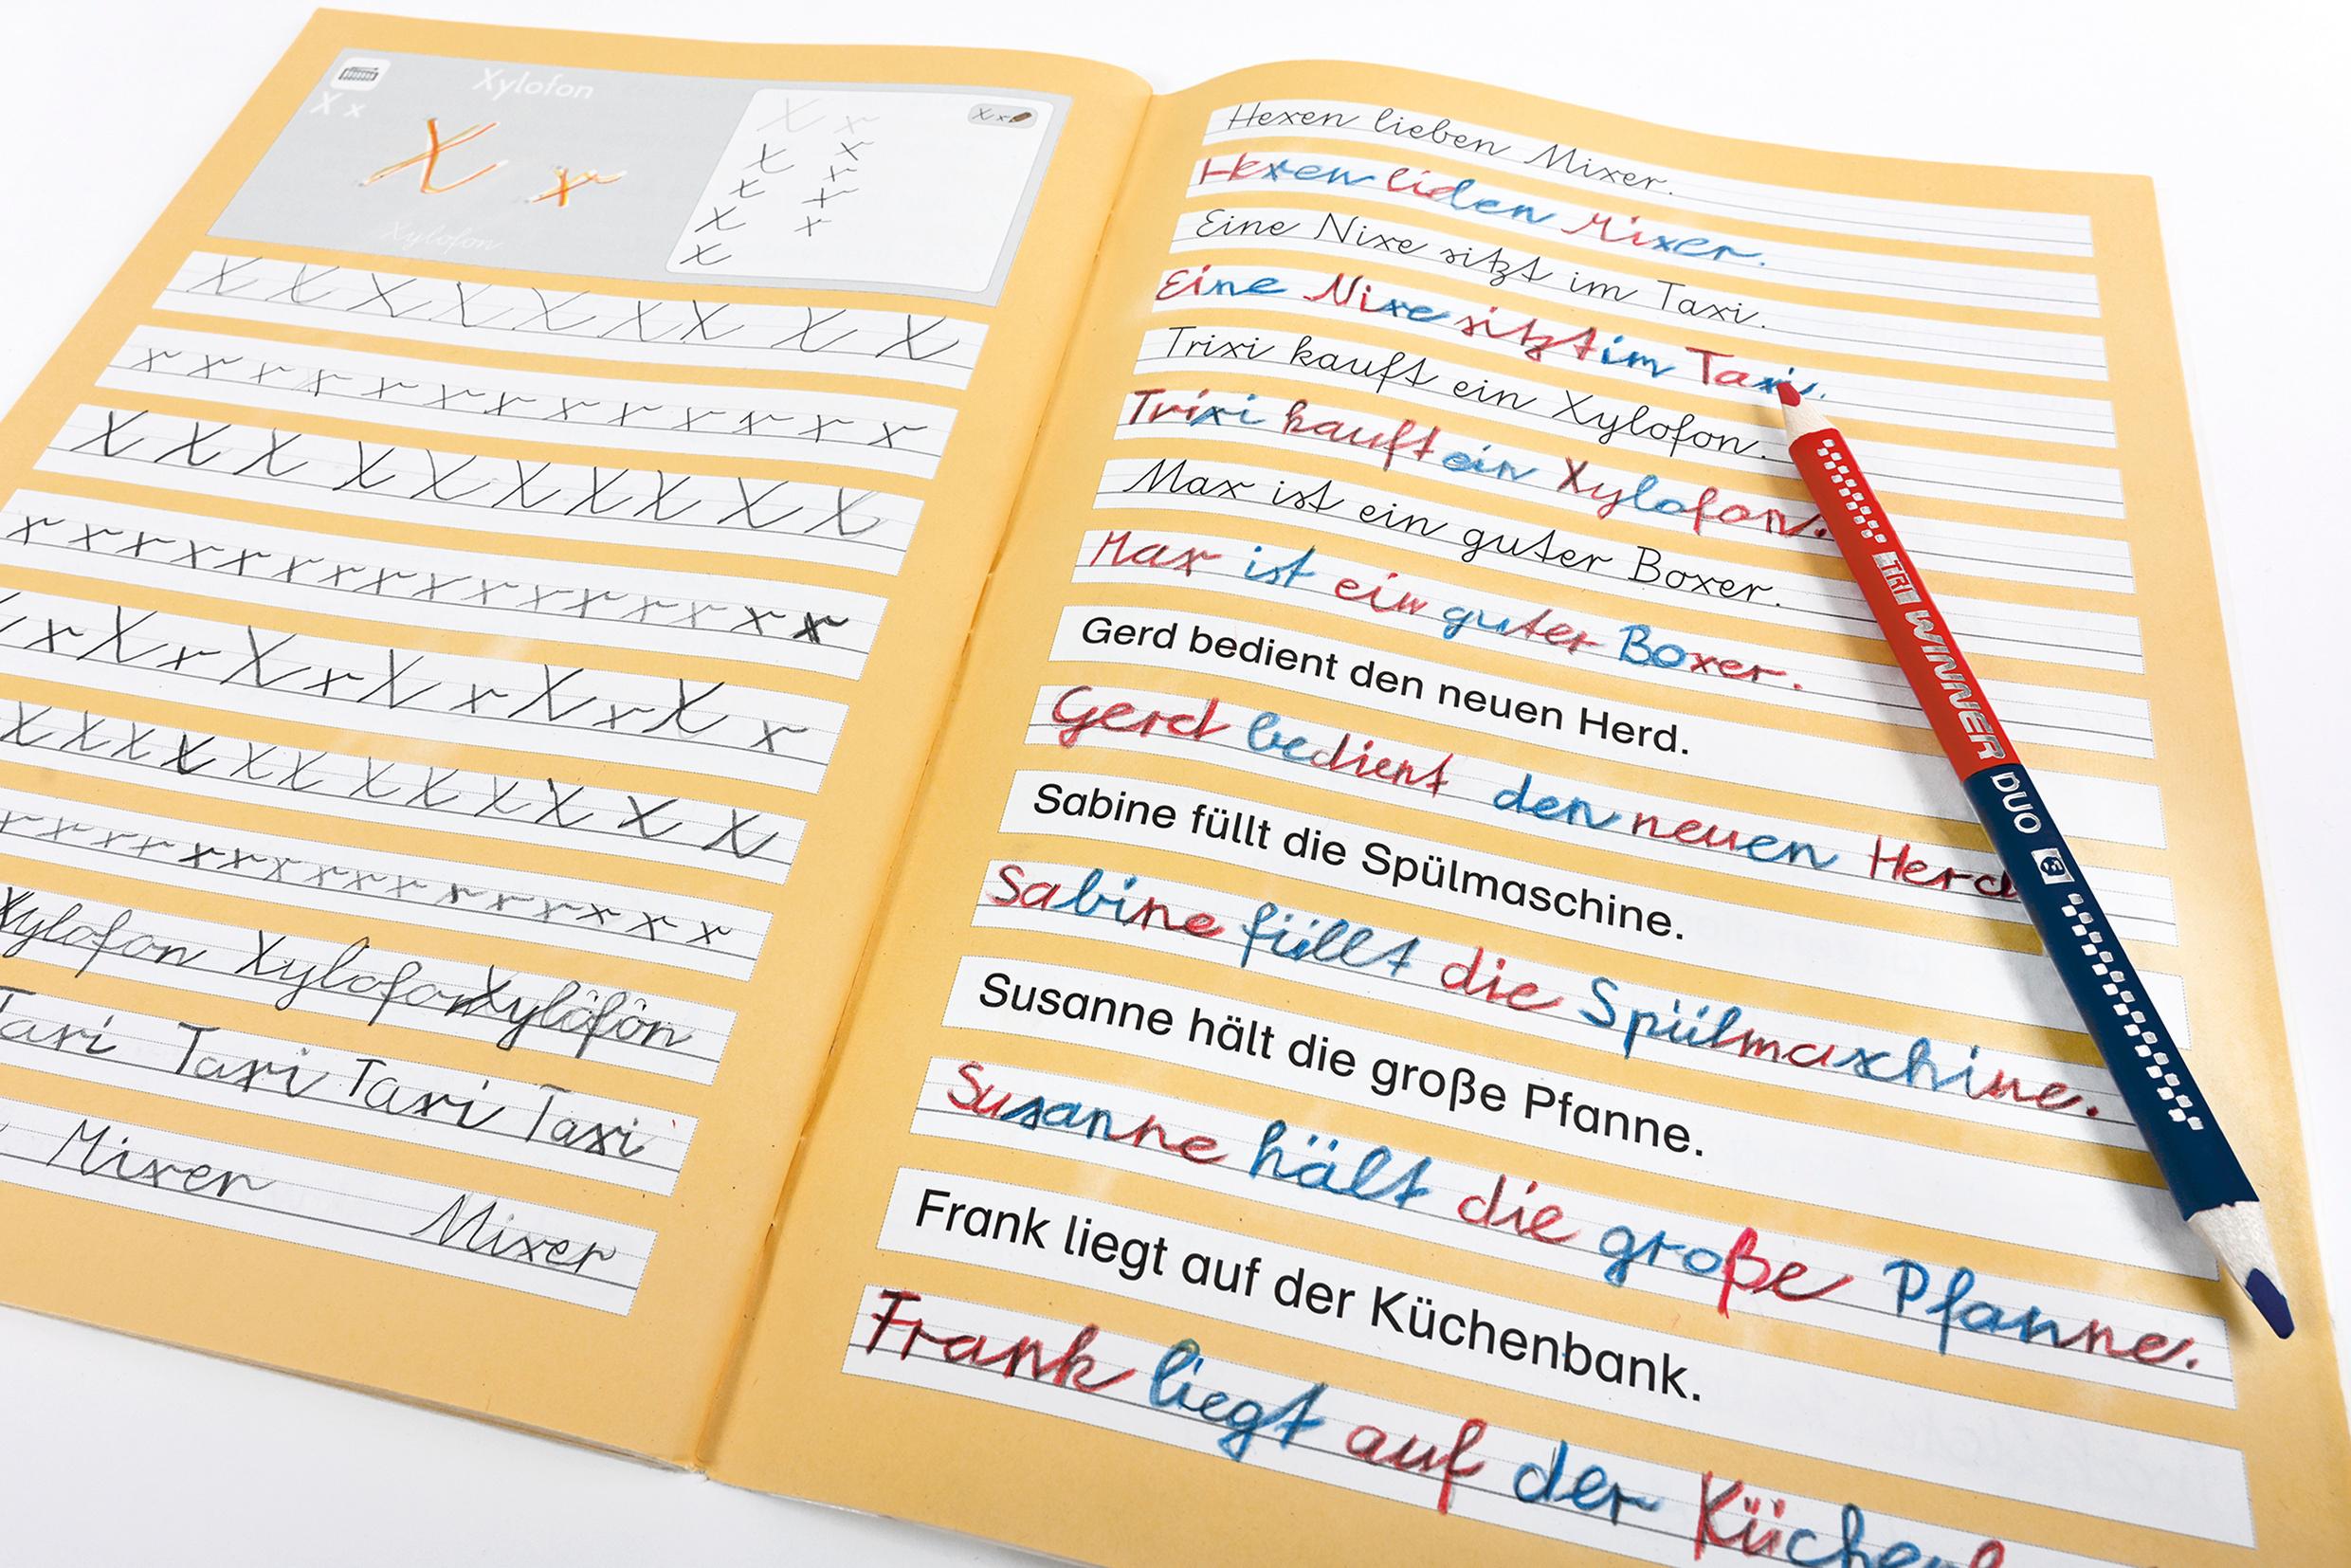 Xylofon
X x
X x
Xylofon
X x
X x
X x
x x
X x
X x
X
X X X X X X X X X
x x x x x x x x x x x x x
X X X X X X X X X X
x x x x x x x x x x x x x x x
x X x X x X x X x X x
X X X X X X X X X X X X
x x x x x x x x x x x x x x x x x
Xylofon Xylofon Xylöfön
Taxi Taxi Taxi Taxi
Mixer Mixer
Hexen lieben Mixer.
Hexen liden Mixer.
Eine Nixe sitzt im Taxi.
Eine Nixe sitzt im Taxi.
Trixi kauft ein Xylofon.
Trixi kauft ein Xylofon.
Max ist ein guter Boxer.
Max ist ein guter Boxer.
Gerd bedient den neuen Herd.
Gerd bedient den neuen Herd
Sabine füllt die Spülmaschine.
Sabine füllt die Spülmaschine.
Susanne hält die große Pfanne.
Susanne hält die große Pfanne.
Frank liegt auf der Küchenbank.
Frank liegt auf der Küchen
TRI WINNER DUO